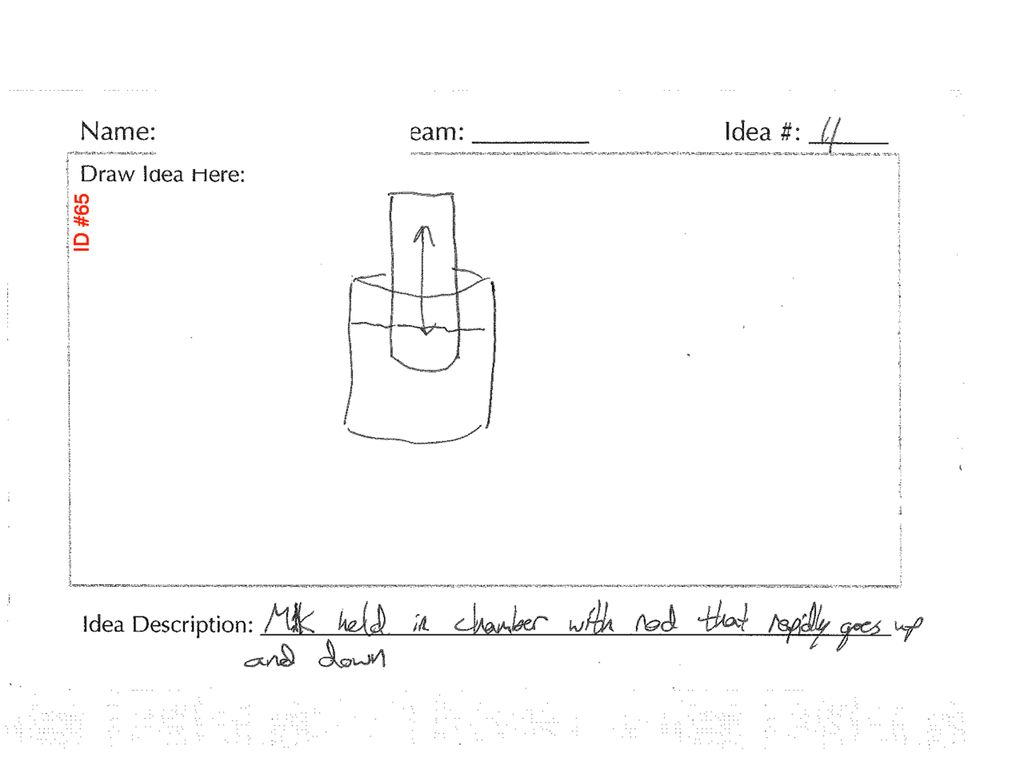 Name:
eam:
Idea #: 11
Draw Idea Here:
ID #65
Idea Description: Milk held in chamber with rod that rapidly goes up
and down